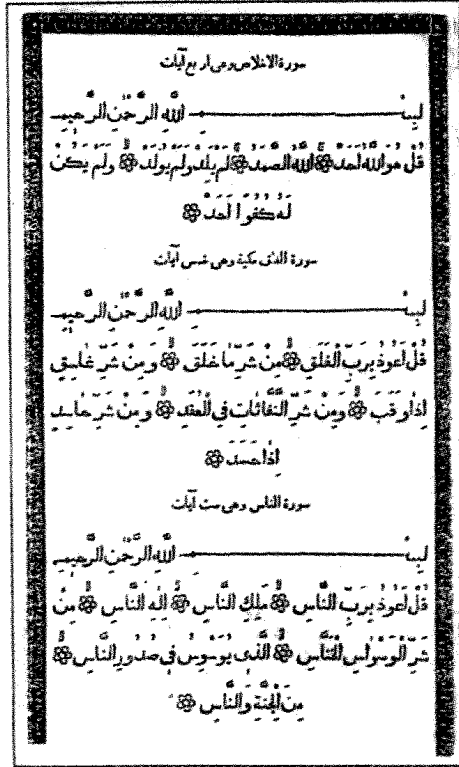 سورة الاخلاص وهى اربع آيات
بِسْـــــــمِ اللَّهِ الرَّحْمٰنِ الرَّحِيمِ
قُلْ هُوَ اللَّهُ اَحَدٌ ۞ اَللَّهُ الصَّمَدُ ۞ لَمْ يَلِدْ وَلَمْ يُولَدْ ۞ وَلَمْ يَكُنْ
لَهُ كُفُوًا اَحَدٌ ۞
سورة الفلق مكية وهى خمس آيات
بِسْـــــــمِ اللَّهِ الرَّحْمٰنِ الرَّحِيمِ
قُلْ اَعُوذُ بِرَبِّ الْفَلَقِ ۞ مِنْ شَرِّ مَا خَلَقَ ۞ وَ مِنْ شَرِّ غَاسِقٍ
اِذَا وَقَبَ ۞ وَمِنْ شَرِّ النَّفَّاثَاتِ فِي الْعُقَدِ ۞ وَ مِنْ شَرِّ حَاسِدٍ
اِذَا حَسَدَ ۞
سورة الناس وهى ست آيات
بِسْـــــــمِ اللَّهِ الرَّحْمٰنِ الرَّحِيمِ
قُلْ اَعُوذُ بِرَبِّ النَّاسِ ۞ مَلِكِ النَّاسِ ۞ اِلٰهِ النَّاسِ ۞ مِنْ
شَرِّ الْوَسْوَاسِ الْخَنَّاسِ ۞ الَّذِى يُوَسْوِسُ فِى صُدُورِ النَّاسِ ۞
مِنَ الْجِنَّةِ وَالنَّاسِ ۞